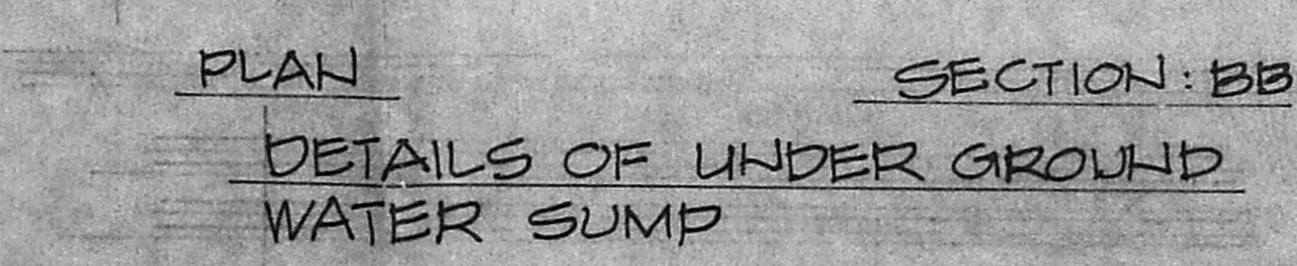 PLAN
SECTION: BB
DETAILS OF UNDER GROUND
WATER SUMP